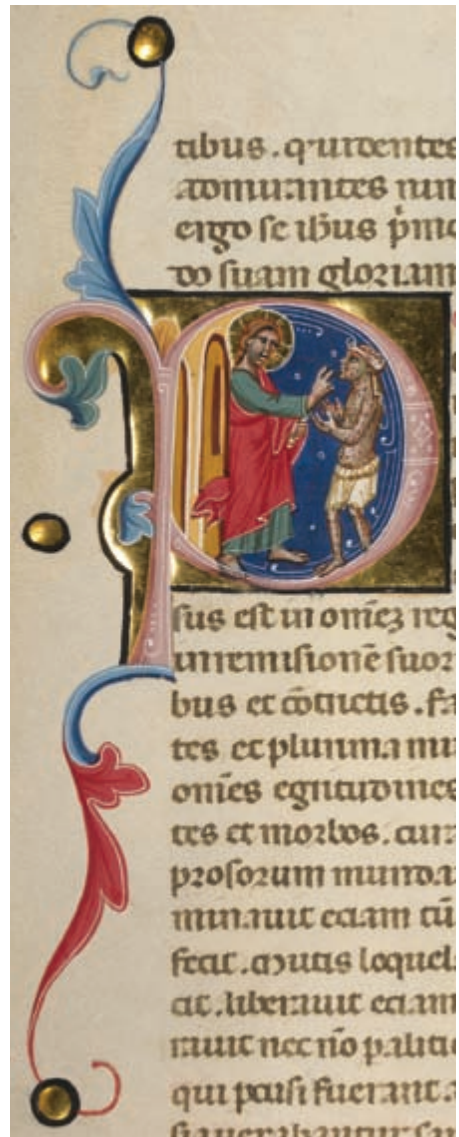 tibus. q̇ uidentes
admirantes nim
ergo se ihus pmo
do suam gloriam
P
sus est in omēz reg
in remisionē suoz
bus et cōuictis. fa
tes et plurima mu
omēs egritudines
tes et morbos. cur
prosorum munda
minauit eciam cū
fecit. mutis loquel
cit. liberauit eciam
rauit nec nō paliti
qui passi fuerant.